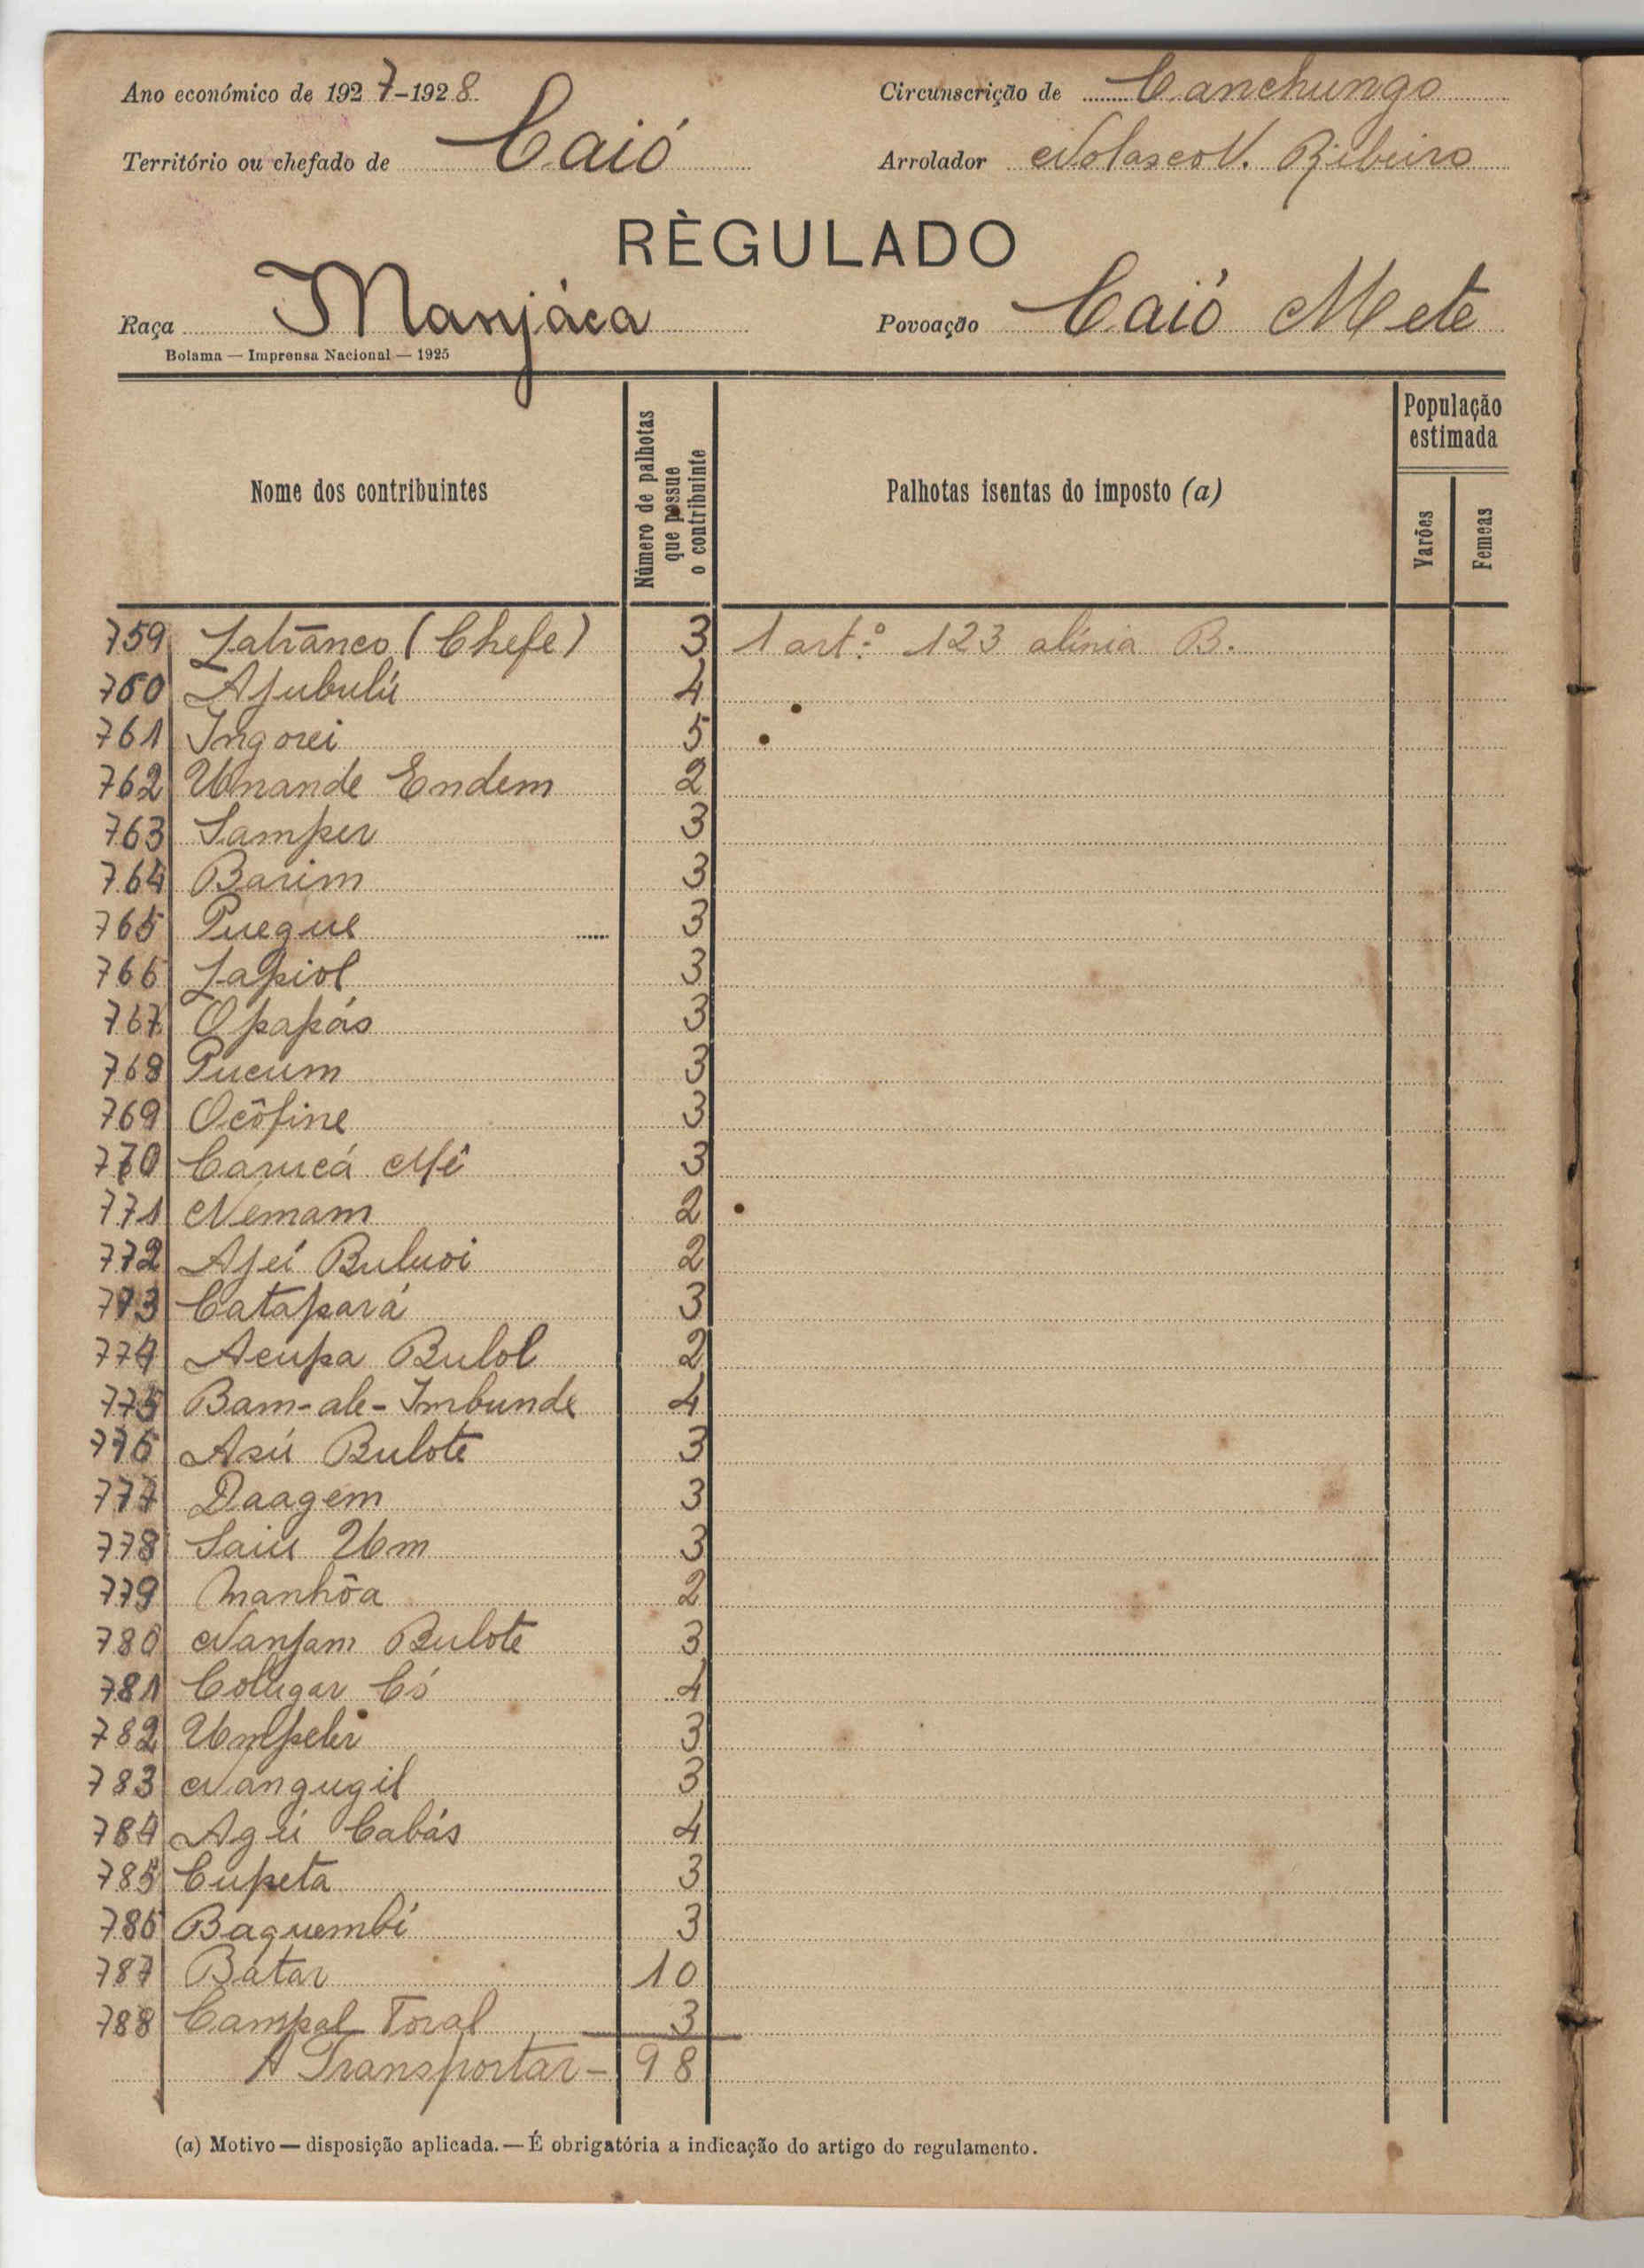 Ano económico de 1927-1928
Circunscrição de Canchungo
Território ou chefado de Caió
Arrolador Nolasco V. Ribeiro
RÈGULADO
Raça Manjáca
Povoação Caió Mete
Bolama — Imprensa Nacional — 1925
Nome dos contribuintes
Número de palhotas que possue o contribuinte
Palhotas isentas do imposto (a)
População estimada
Varões
Femeas
759 (Chefe) 3 1 art.º 123 alínia B.
760 Ajubulú 4
761 Ingorei 5
762 Unande Endem 2
763 Samper 3
764 Barim 3
765 Puegue 3
766 Japiol 3
767 Opapás 3
768 Pucum 3
769 Ocôfine 3
770 Carucá Mê 3
771 Nemam 2
772 Ajei Buluoi 2
773 Catapará 3
774 Acupa Bulol 2
775 Bam-ale-Imbunde 4
776 Asú Bulote 3
777 Daagem 3
778 Saiu Um 3
779 Manhôa 2
780 Nanjam Bulote 3
781 Colugar Có 4
782 Umpeler 3
783 Nangugil 3
784 Agú Cabás 4
785 Cupeta 3
786 Baquembi 3
787 Batar 10
788 Campal Toral 3
A Transportar - 98
(a) Motivo — disposição aplicada. — É obrigatória a indicação do artigo do regulamento.